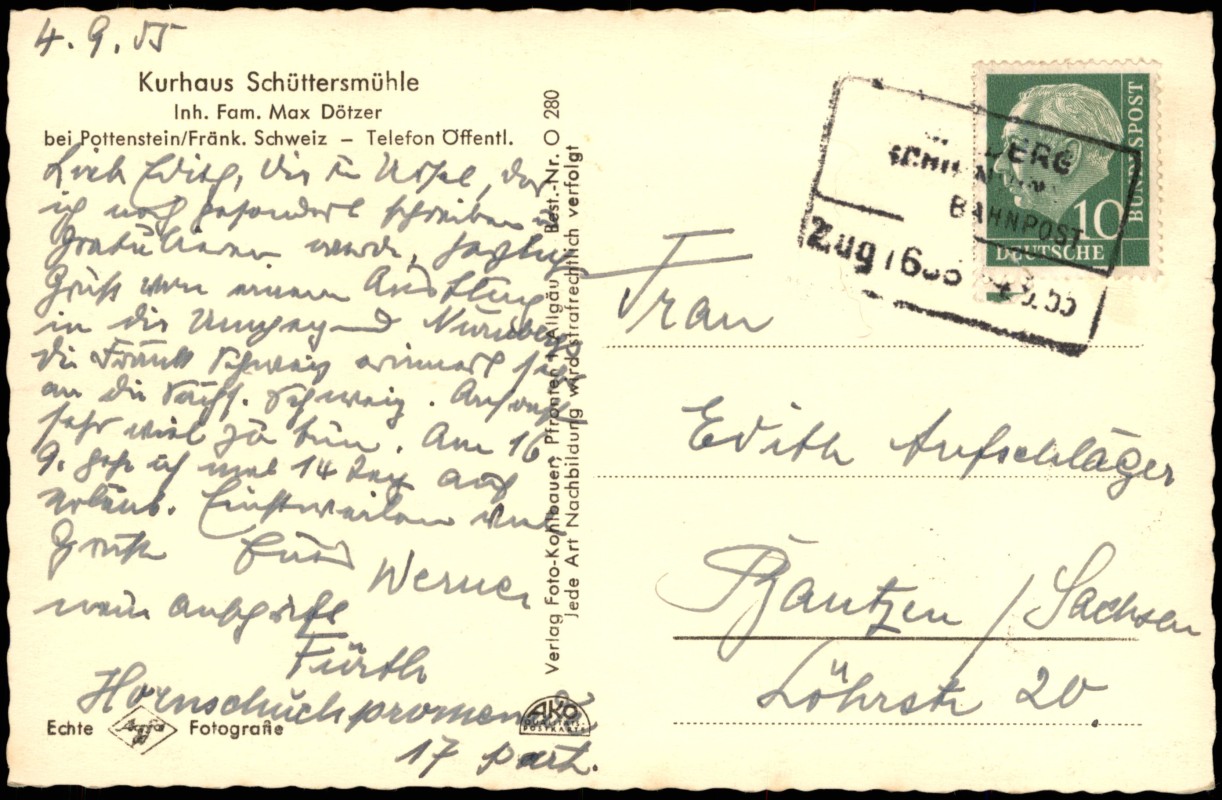 4. 9. 55
Kurhaus Schüttersmühle
Inh. Fam. Max Dötzer
bei Pottenstein/Fränk. Schweiz – Telefon Öffentl.
Lieb Edith, Dir u Ursel, der
ich noch besonders schreiben u
gratulieren werde, herzlich
Grüße von einem Ausflug
in die Umgegend Nürnbergs
die Fränk Schweiz erinnert sehr
an die Sächs. Schweiz. Ansonst
sehr viel zu tun. Am 16
9. gehe ich mal 14 Tag auf
Urlaub. Einstweilen viel
Grüße Euer Werner
mein Anschrift
Fürth
Hornschuchpromenade
17 part.
Echte Agfa Fotografie
Verlag Foto-Kohlbauer, Pfronten i. Allgäu Best.-Nr. O 280
Jede Art Nachbildung wird strafrechtlich verfolgt
AKO
QUALITÄTS
POSTKARTE
BAHNPOST
Zug
DEUTSCHE
BUNDESPOST
10
Frau
Edith Aufschläger
Bautzen / Sachsen
Löhrstr 20.